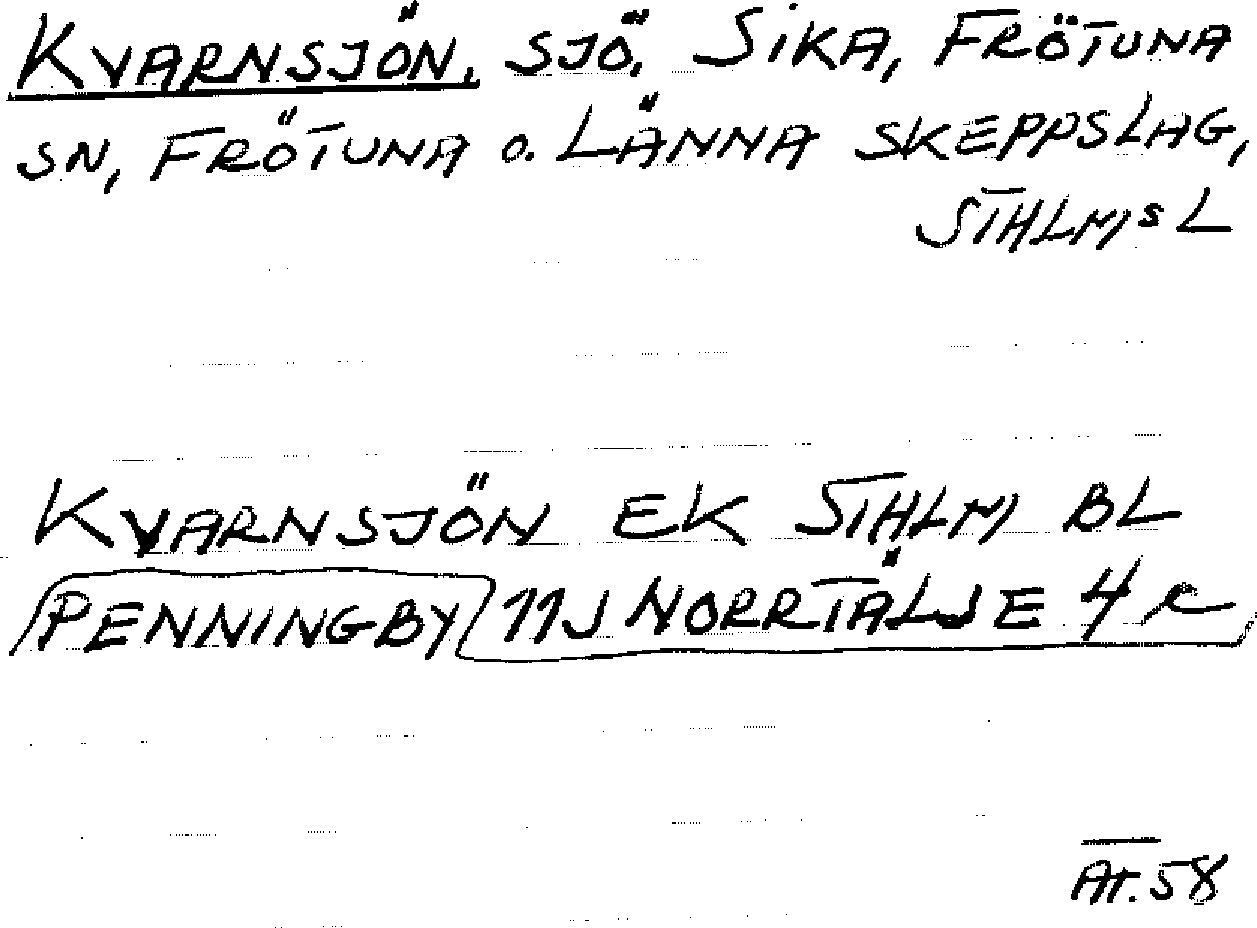 KVARNSJÖN, SJÖ, SIKA, FRÖTUNA
SN, FRÖTUNA o. LÄNNA SKEPPSLAG,
STHLMS L
KVARNSJÖN EK STHLM BL
PENNINGBY 11J NORRTÄLJE 4 c
AT. 58